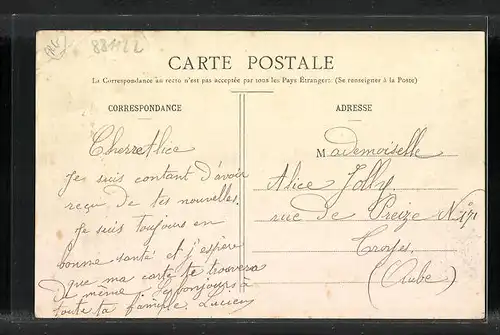 881122
CARTE POSTALE
La Correspondance au recto n'est pas acceptée par tous les Pays Étrangers (Se renseigner à la Poste)
CORRESPONDANCE
Cherre Alice
Je suis contant d'avoir
reçu De tes nouvelles.
Je suis toujours en
bonne santé et j'espère
Que ma carte te trouvera
de même bonjours à
toute ta famille. Lucien
ADRESSE
Mademoiselle
Alice Jolly
rue De Preize
Troyes
(Aube)